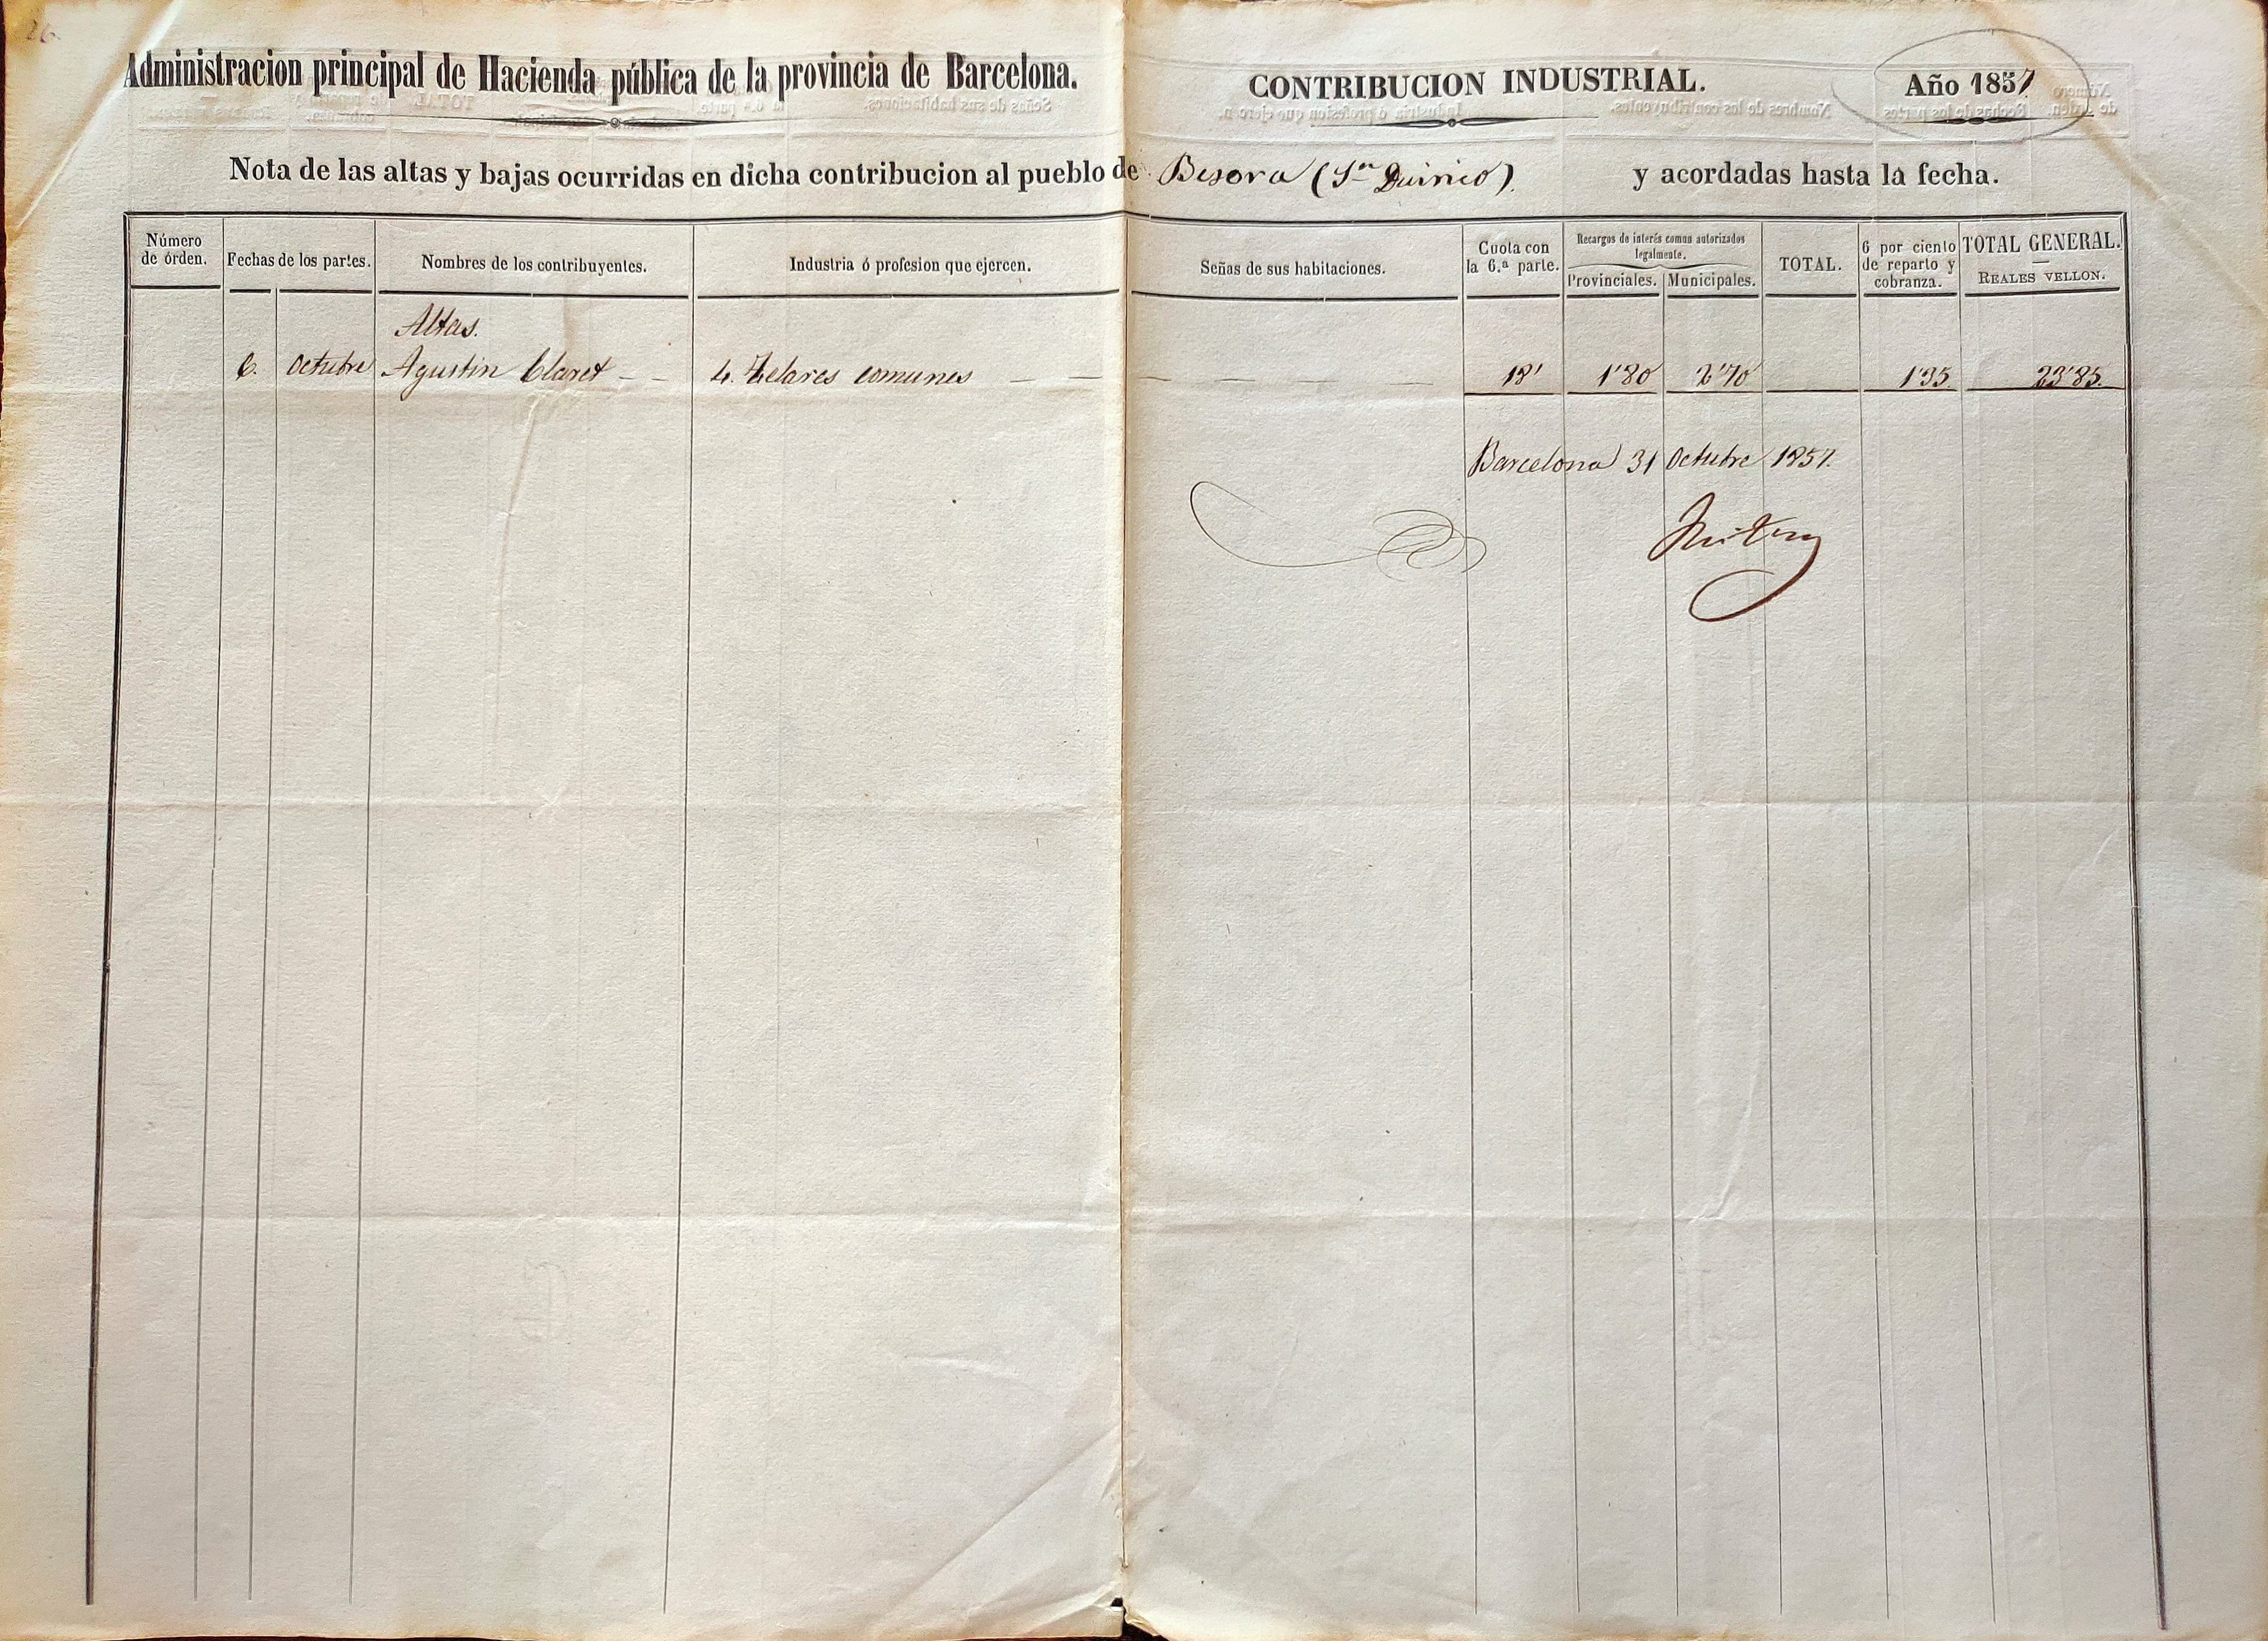 26.
Administracion principal de Hacienda pública de la provincia de Barcelona.
CONTRIBUCION INDUSTRIAL.
Año 1857
Nota de las altas y bajas ocurridas en dicha contribucion al pueblo de Besora (Sn Quirico) y acordadas hasta la fecha.
Número de órden.
Fechas de los partes.
Nombres de los contribuyentes.
Industria ó profesion que ejercen.
Señas de sus habitaciones.
Cuota con la 6.ª parte.
Recargos de interés comun autorizados legalmente.
Provinciales.
Municipales.
TOTAL.
6 por ciento de reparto y cobranza.
TOTAL GENERAL.
REALES VELLON.
Altas.
6. Octubre Agustin Claret — — 4. Telares comunes — — — — — — — — 18' 1'80 2'70 1'35 23'85.
Barcelona 31 Octubre 1857.